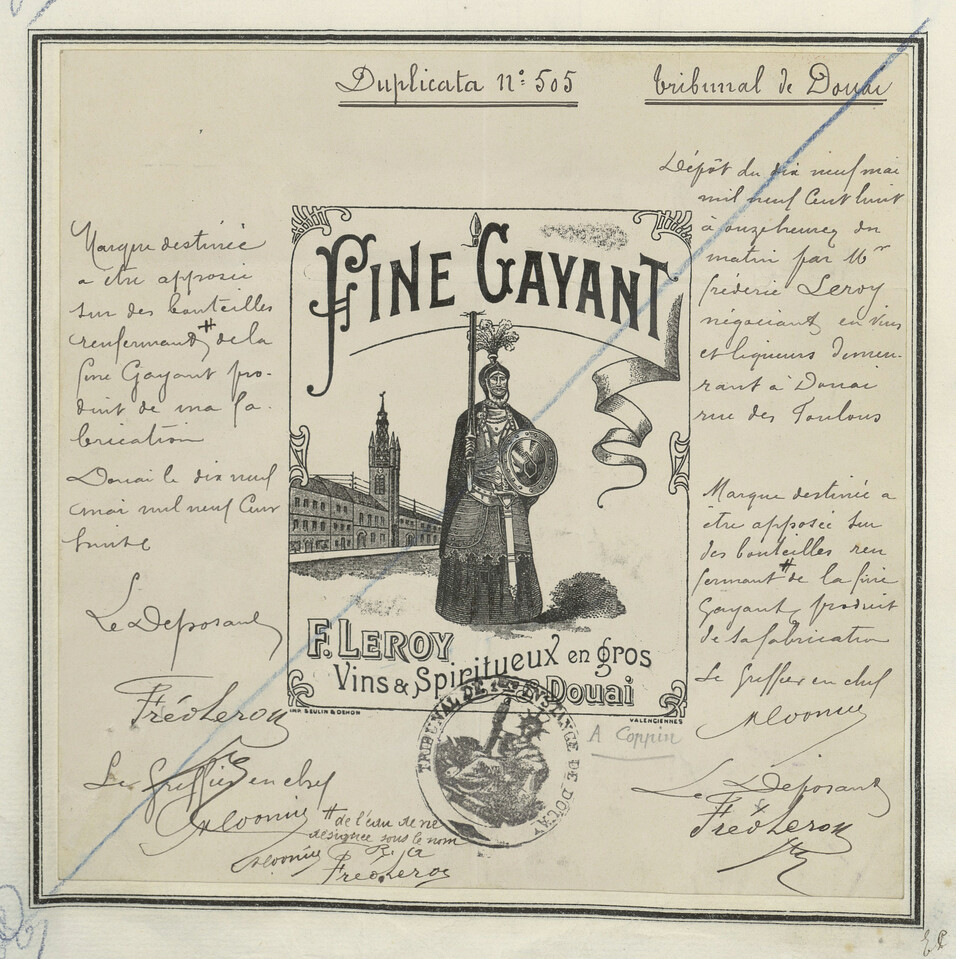 Duplicata n° 505
tribunal de Douai
Marque destinée
a être apposée
sur des bouteilles
renfermant # de la
fine Gayant pro-
duit de ma fa-
brication
Douai le dix neuf
mai mil neuf Cent
huit
Le Déposant
Fréd Leroy
Le Greffier en chef
# de l'eau de vie
designée sous le nom
Fréd Leroy
FINE GAYANT
F. LEROY
Vins & Spiritueux en gros
à Douai
IMP. SEULIN & DEHON
VALENCIENNES
TRIBUNAL DE 1ère INSTANCE DE DOUAI
A Coppin
Dépôt du dix neuf mai
mil neuf Cent huit
à onze heures du
matin par Mr
fréderic Leroy
négociant en vins
et liqueurs demeu-
rant à Douai
rue des Foulons
Marque destinée a
être apposée sur
des bouteilles ren
fermant # de la fine
Gayant, produit
de sa fabrication
Le Greffier en chef
Le Déposant
Fréd Leroy